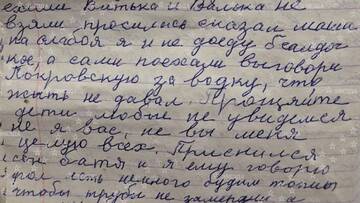 ехали Витька и Валька не
взяли просились сказал маши
на слабая я и не доеду
ное, а сами поехали выговори
Покровскую за водку, что
жить не давал. Прощайте
дети любые не увидемся
не я вас, не вы меня
целую всех. Приснился
сон батя и я ему говорю
есть немного будим топить
чтобы трубы не замерзли а